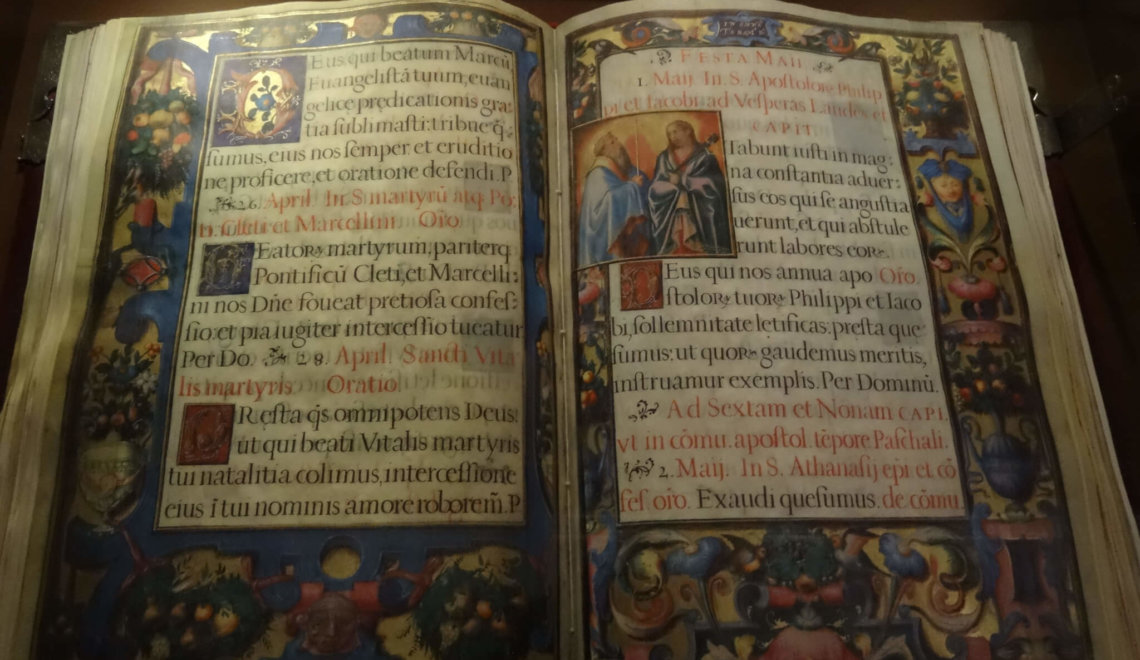 Deus, qui beatum Marcū
Euangeliſtā tuum, euan
gelicę prędicationis gra:
tia ſublimaſti: tribue q̨
ſumus, eius nos ſemper et eruditio
ne proficere, et oratione defendi. P
26. April. In S. martyrū atq. Pō:
et Marcellini Orō.
BEatoꝝ martyrum, pariterq
Pontificū Cleti, et Marcelli:
ni nos Dn̄e foueat pretioſa confeſ:
ſio: et pia iugiter interceſſio tueatur
Per Do. 28. April. Sancti Vita
lis martyris. Oratio.
PRęſta q̄s omnipotens Deus:
ut qui beati Vitalis martyris
tui natalitia colimus, interceſſione
eius ī tui nominis amore roborem̄. P
FESTA MAII
1. Maij. In S. Apoſtolorū Philip
pi et Iacobi ad Veſperas Laudes et
CAPIT.
Stabunt iuſti in mag:
na conſtantia aduer:
ſus eos qui ſe anguſtia
uerunt, et qui abſtule
runt labores eoꝝ.
DEus qui nos annua apo Orō.
ſtoloꝝ tuoꝝ Philippi et Iaco
bi, ſollemnitate letificas: pręſta quę:
ſumus: ut quoꝝ gaudemus meritis,
inſtruamur exemplis. Per Dominū.
Ad Sextam et Nonam CAPI.
vt in cōmu. apoſtol. tēpore Paſchali.
2. Maij. In S. Athanaſij ep̄i et cō
feſ. orō. Exaudi quęſumus. de cōmu